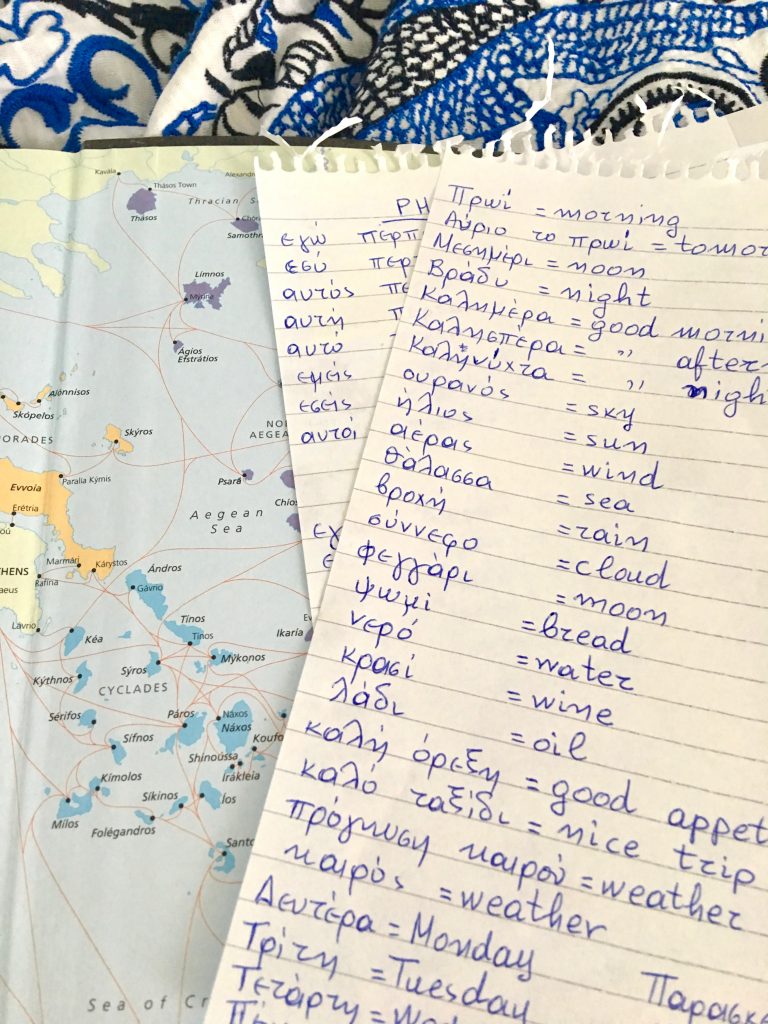 Kavála
Thásos Town
Thásos
Thracian
Samothr
Límnos
Mýrina
Ágios
Efstrátios
Alónnisos
Skópelos
ORADES
Skýros
AEGEA
Paralia Kýmis
Evvoía
Erétria
Psará
Chíos
Aegean
Sea
Marmári
Kárystos
HENS
Rafína
aeus
Ándros
Gávrio
Lávrio
Tínos
Tínos
Ikaría
Kéa
Mýkonos
Sýros
Kýthnos
CYCLADES
Sérifos
Páros
Náxos
Náxos
Sífnos
Koufo
Shinoússa
Irákleia
Kímolos
Síkinos
Íos
Mílos
Folégandros
Santo
Sea of Cr
ΡΗ
εγώ περπ
εσύ περ
αυτός πε
αυτή π
αυτό
εμείς
εσείς
αυτοί
εγ
Πρωί = morning
Αύριο το πρωί = tomor
Μεσημέρι = noon
Βράδυ = night
Καλημέρα = good morni
Καλησπέρα = ,, after
Καληνύχτα = ,, nigh
ουρανός = sky
ήλιος = sun
αέρας = wind
θάλασσα = sea
βροχή = rain
σύννεφο = cloud
φεγγάρι = moon
ψωμί = bread
νερό = water
κρασί = wine
λάδι = oil
καλή όρεξη = good appet
καλό ταξίδι = nice trip
πρόγνωση καιρού = weather
καιρός = weather
Δευτέρα = Monday
Τρίτη = Tuesday
Παρασκ
Τετάρτη = Wed